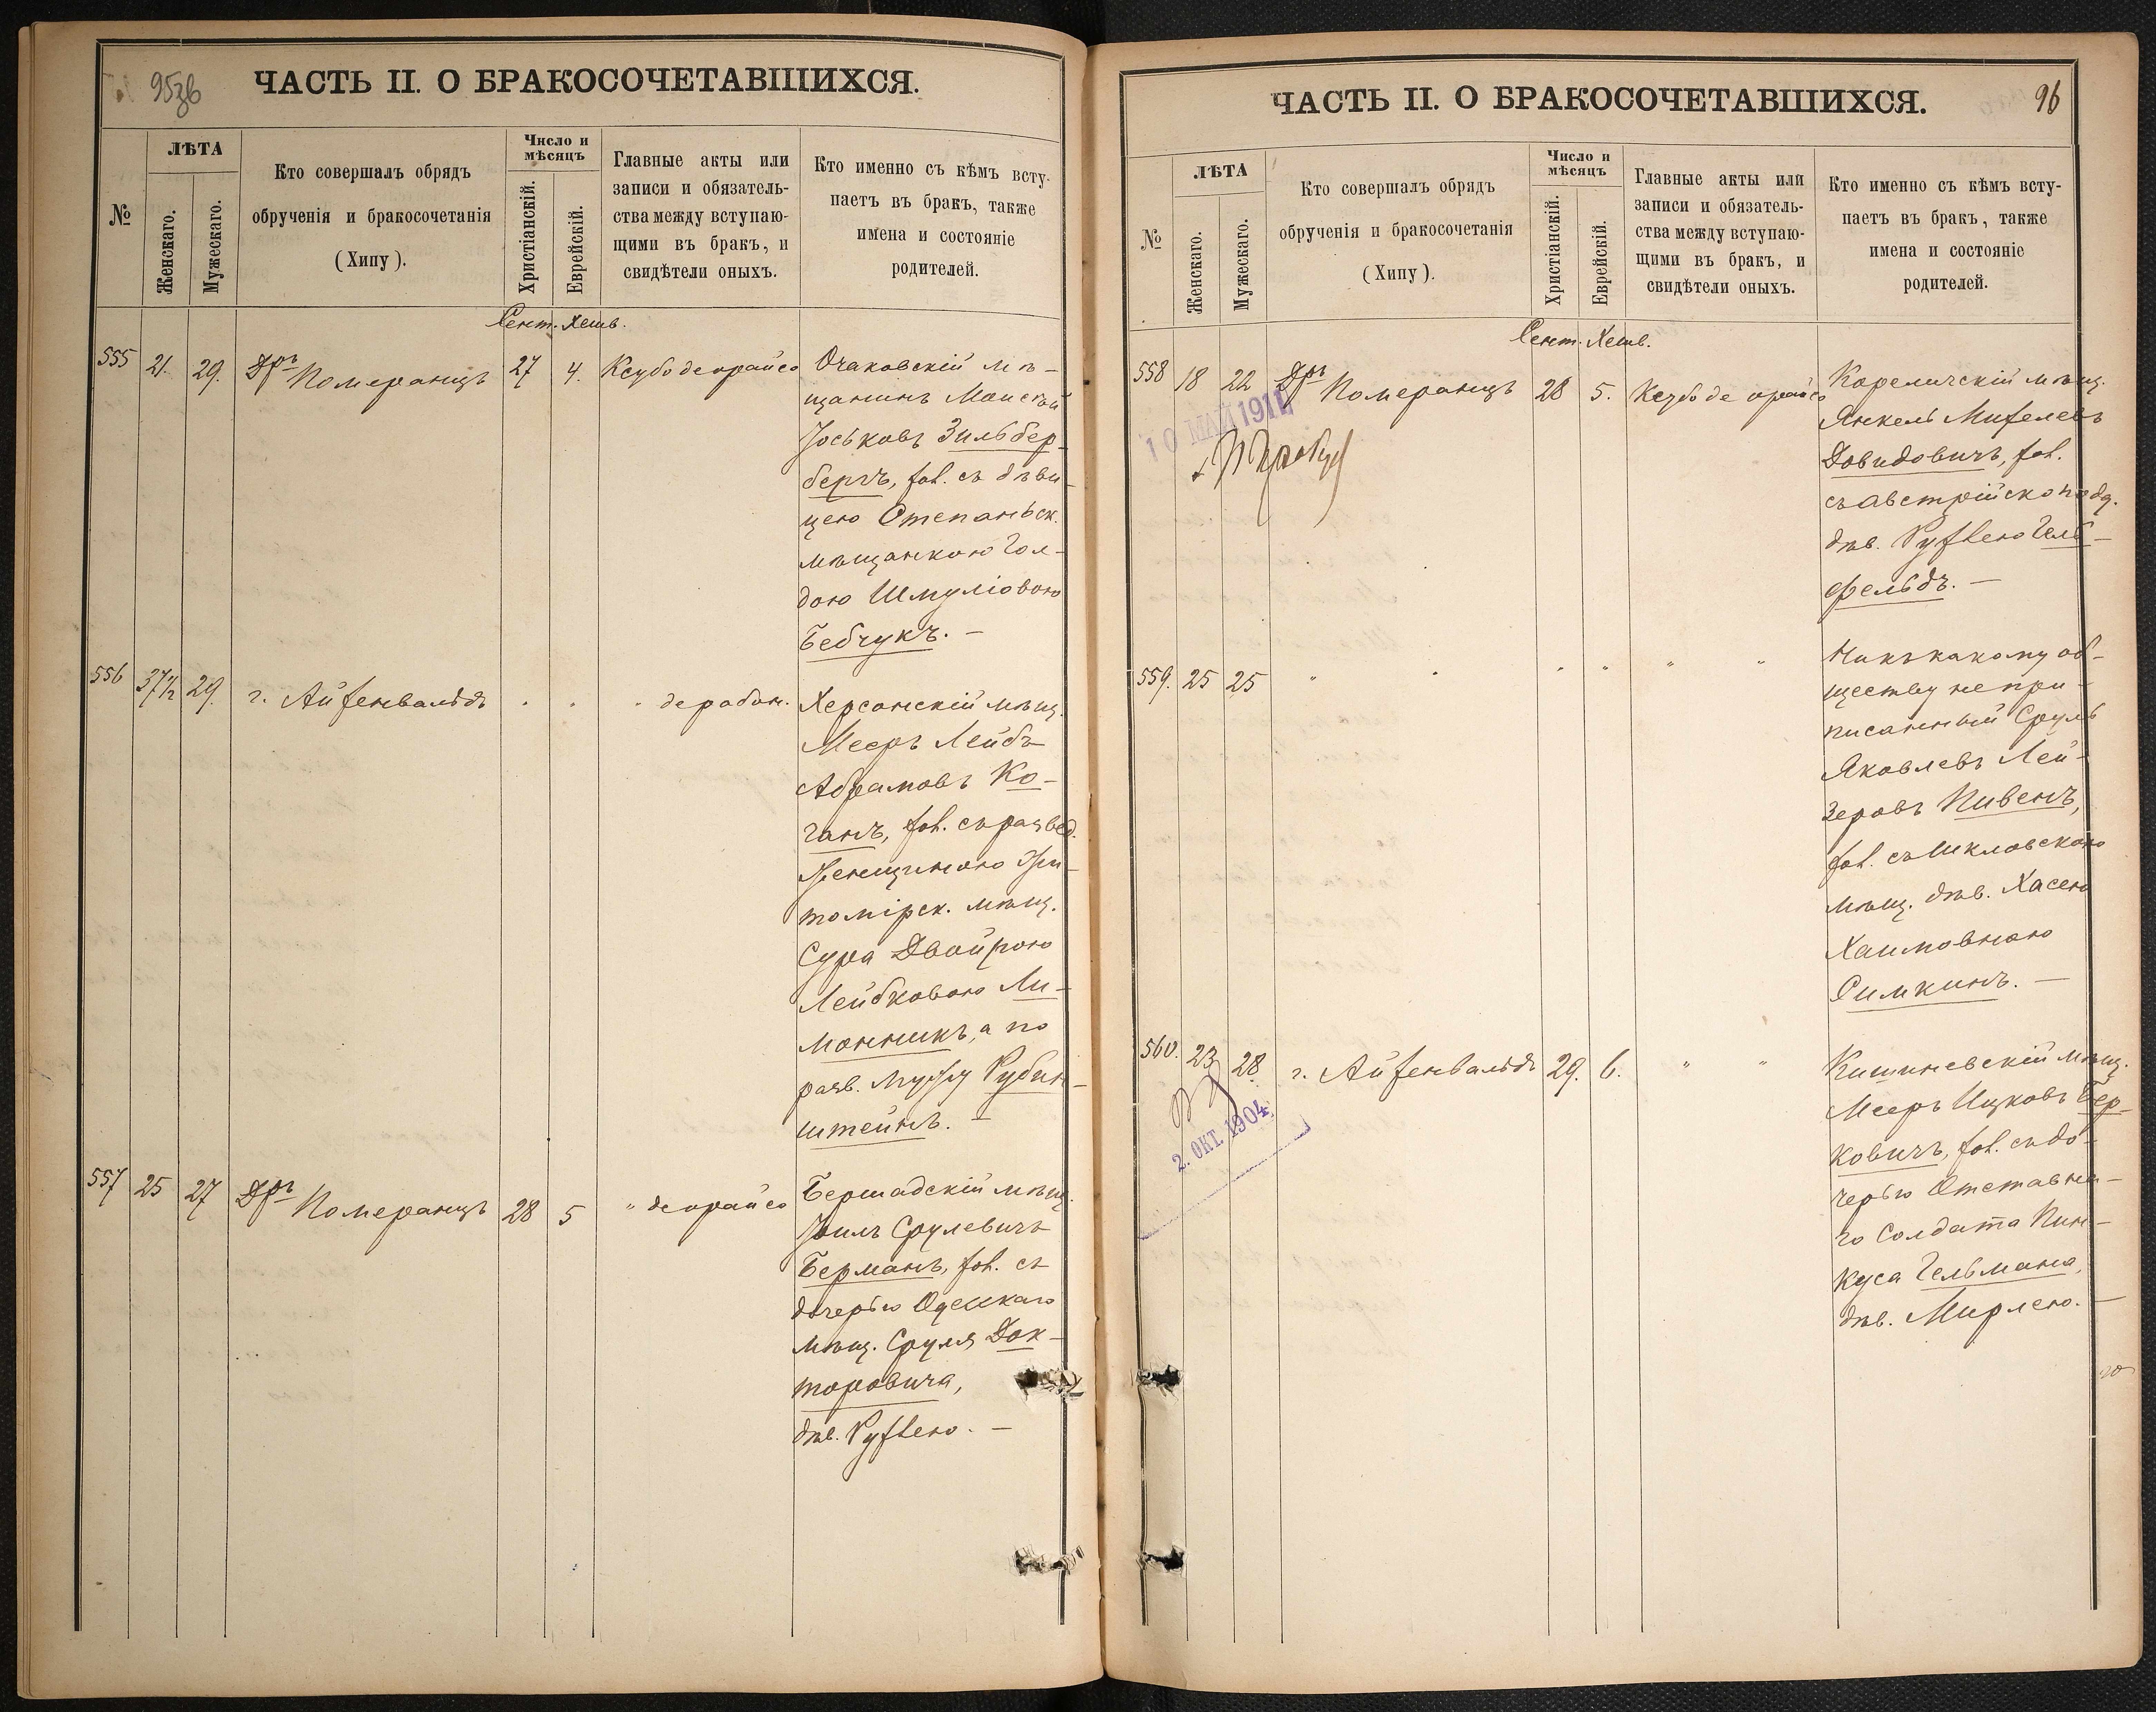 95об
ЧАСТЬ II. О БРАКОСОЧЕТАВШИХСЯ.
№
ЛѢТА
Женскаго.
Мужескаго.
Кто совершалъ обрядъ
обрученія и бракосочетанія
(Хипу).
Число и
мѣсяцъ
Христіанскій.
Еврейскій.
Главные акты или
записи и обязатель-
ства между вступаю-
щими въ бракъ, и
свидѣтели оныхъ.
Кто именно съ кѣмъ всту-
паетъ въ бракъ, также
имена и состояніе
родителей.
Сент. Хешв.
555 21. 29. Дръ Померанцъ 27 4. Ксубо деорайсо
Очаковскій мѣ-
щанинъ Моисей
Іоськовъ Зильбер-
бергъ, хол. съ дѣви-
цею Степаньск.
мѣщанкою Гол-
дою Шмуліовою
Бебчукъ. —
556 37½ 29. г. Айхенвальдъ " " " дерабон.
Херсонскій мѣщ.
Мееръ Лейбъ
Абрамовъ Ко-
ганъ, хол. съ развед.
женщиною Жи-
томірск. мѣщ.
Сура Двойрою
Лейбковою Ли-
монникъ, а по
разв. мужу Рубин-
штейнъ. —
557 25 27 Дръ Померанцъ 28 5 " деорайсо
Бершадскій мѣщ.
Іоилъ Срулевичъ
Берманъ, хол. съ
дочерью Одесскаго
мѣщ. Сруля Док-
торовича,
дѣв. Рухлею. —
96
ЧАСТЬ II. О БРАКОСОЧЕТАВШИХСЯ.
№
ЛѢТА
Женскаго.
Мужескаго.
Кто совершалъ обрядъ
обрученія и бракосочетанія
(Хипу).
Число и
мѣсяцъ
Христіанскій.
Еврейскій.
Главные акты или
записи и обязатель-
ства между вступаю-
щими въ бракъ, и
свидѣтели оныхъ.
Кто именно съ кѣмъ всту-
паетъ въ бракъ, также
имена и состояніе
родителей.
Сент. Хешв.
558 18 22 Дръ Померанцъ 28 5. Ксубо де орайсо
10 МАЙ 1911
Кореличскій мѣщ.
Янкель Михелевъ
Довидовичъ, хол.
съ австрійскоподд.
дѣв. Рухлею Гель-
фельдъ. —
559. 25 25 " " " " " "
Ни къ какому об-
ществу не при-
писанный Сруль
Яковлевъ Лей-
зеровъ Пивенъ,
хол. съ Шкловскою
мѣщ. дѣв. Хасею
Хаимовною
Симкинъ. —
560. 23 28. г. Айхенвальдъ 29. 6. " "
2. ОКТ. 1904.
Кишиневскій мѣщ.
Мееръ Ицковъ Бер-
ковичъ, хол. съ до-
черью Отставна-
го Солдата Пин-
куса Гельмана,
дѣв. Мирлею. —